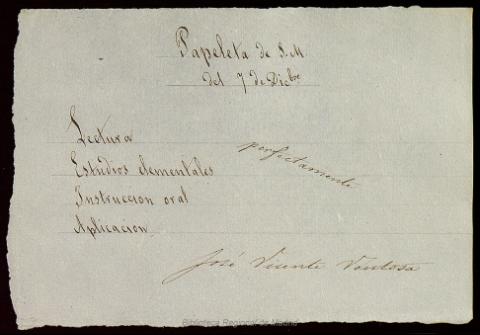 Papeleta de S.M
del 7 de Dicbre
Lectura
Estudios elementales
perfectamente
Instruccion oral
Aplicacion
José Vicente Ventosa
Biblioteca Regional de Madrid